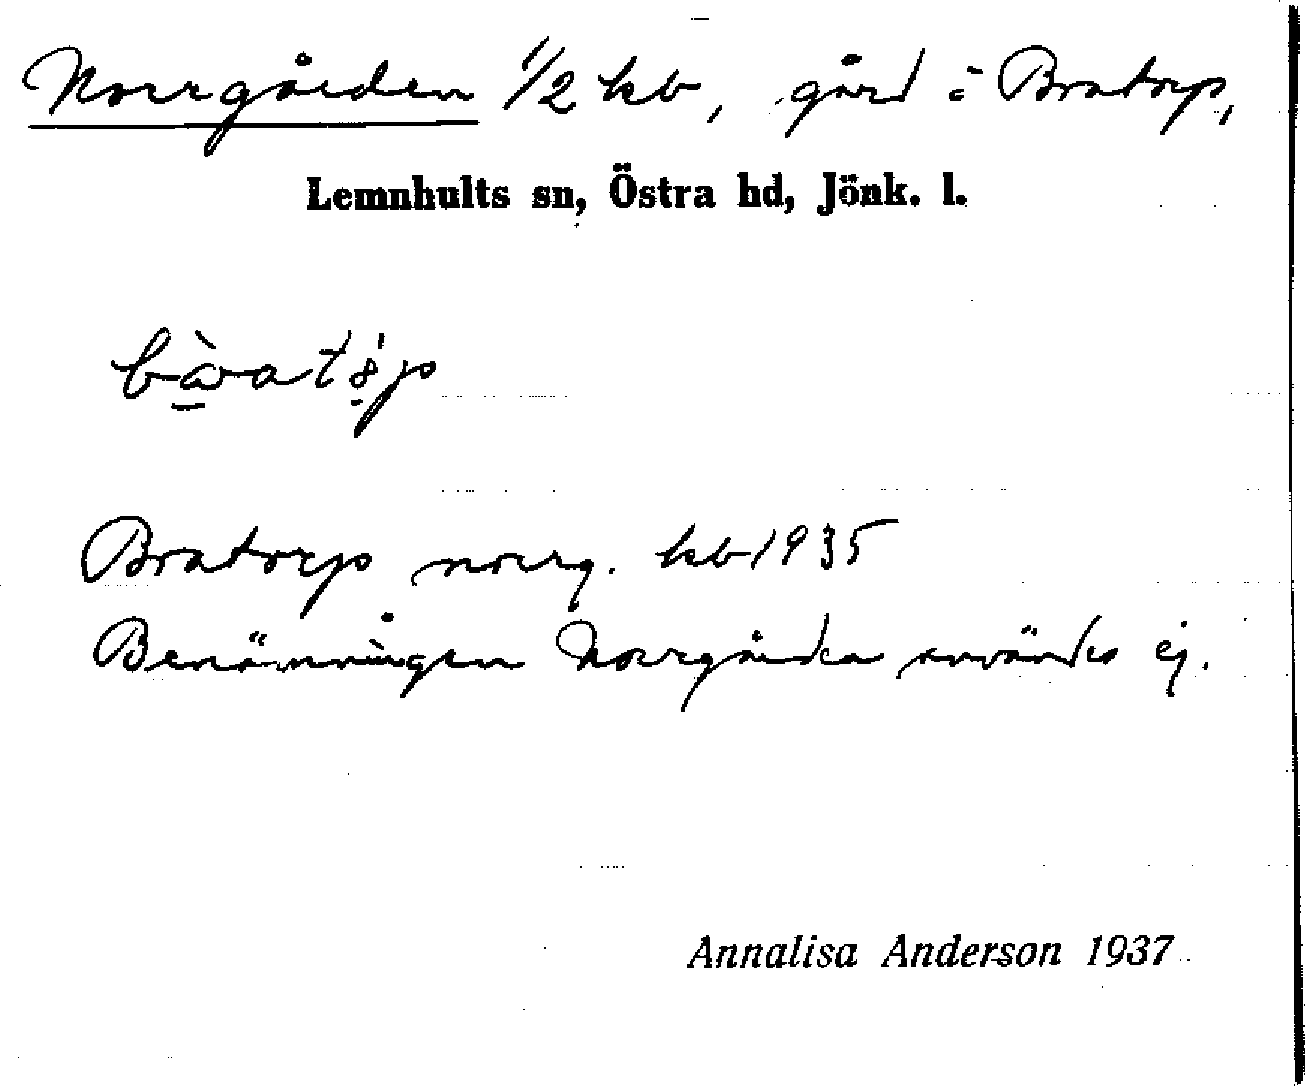 Norrgården 1/2 kb, gård i Bratorp,
Lemnhults sn, Östra hd, Jönk. l.
Bratorp norrg. kb 1935
Benämningen Norrgården användes ej.
Annalisa Anderson 1937